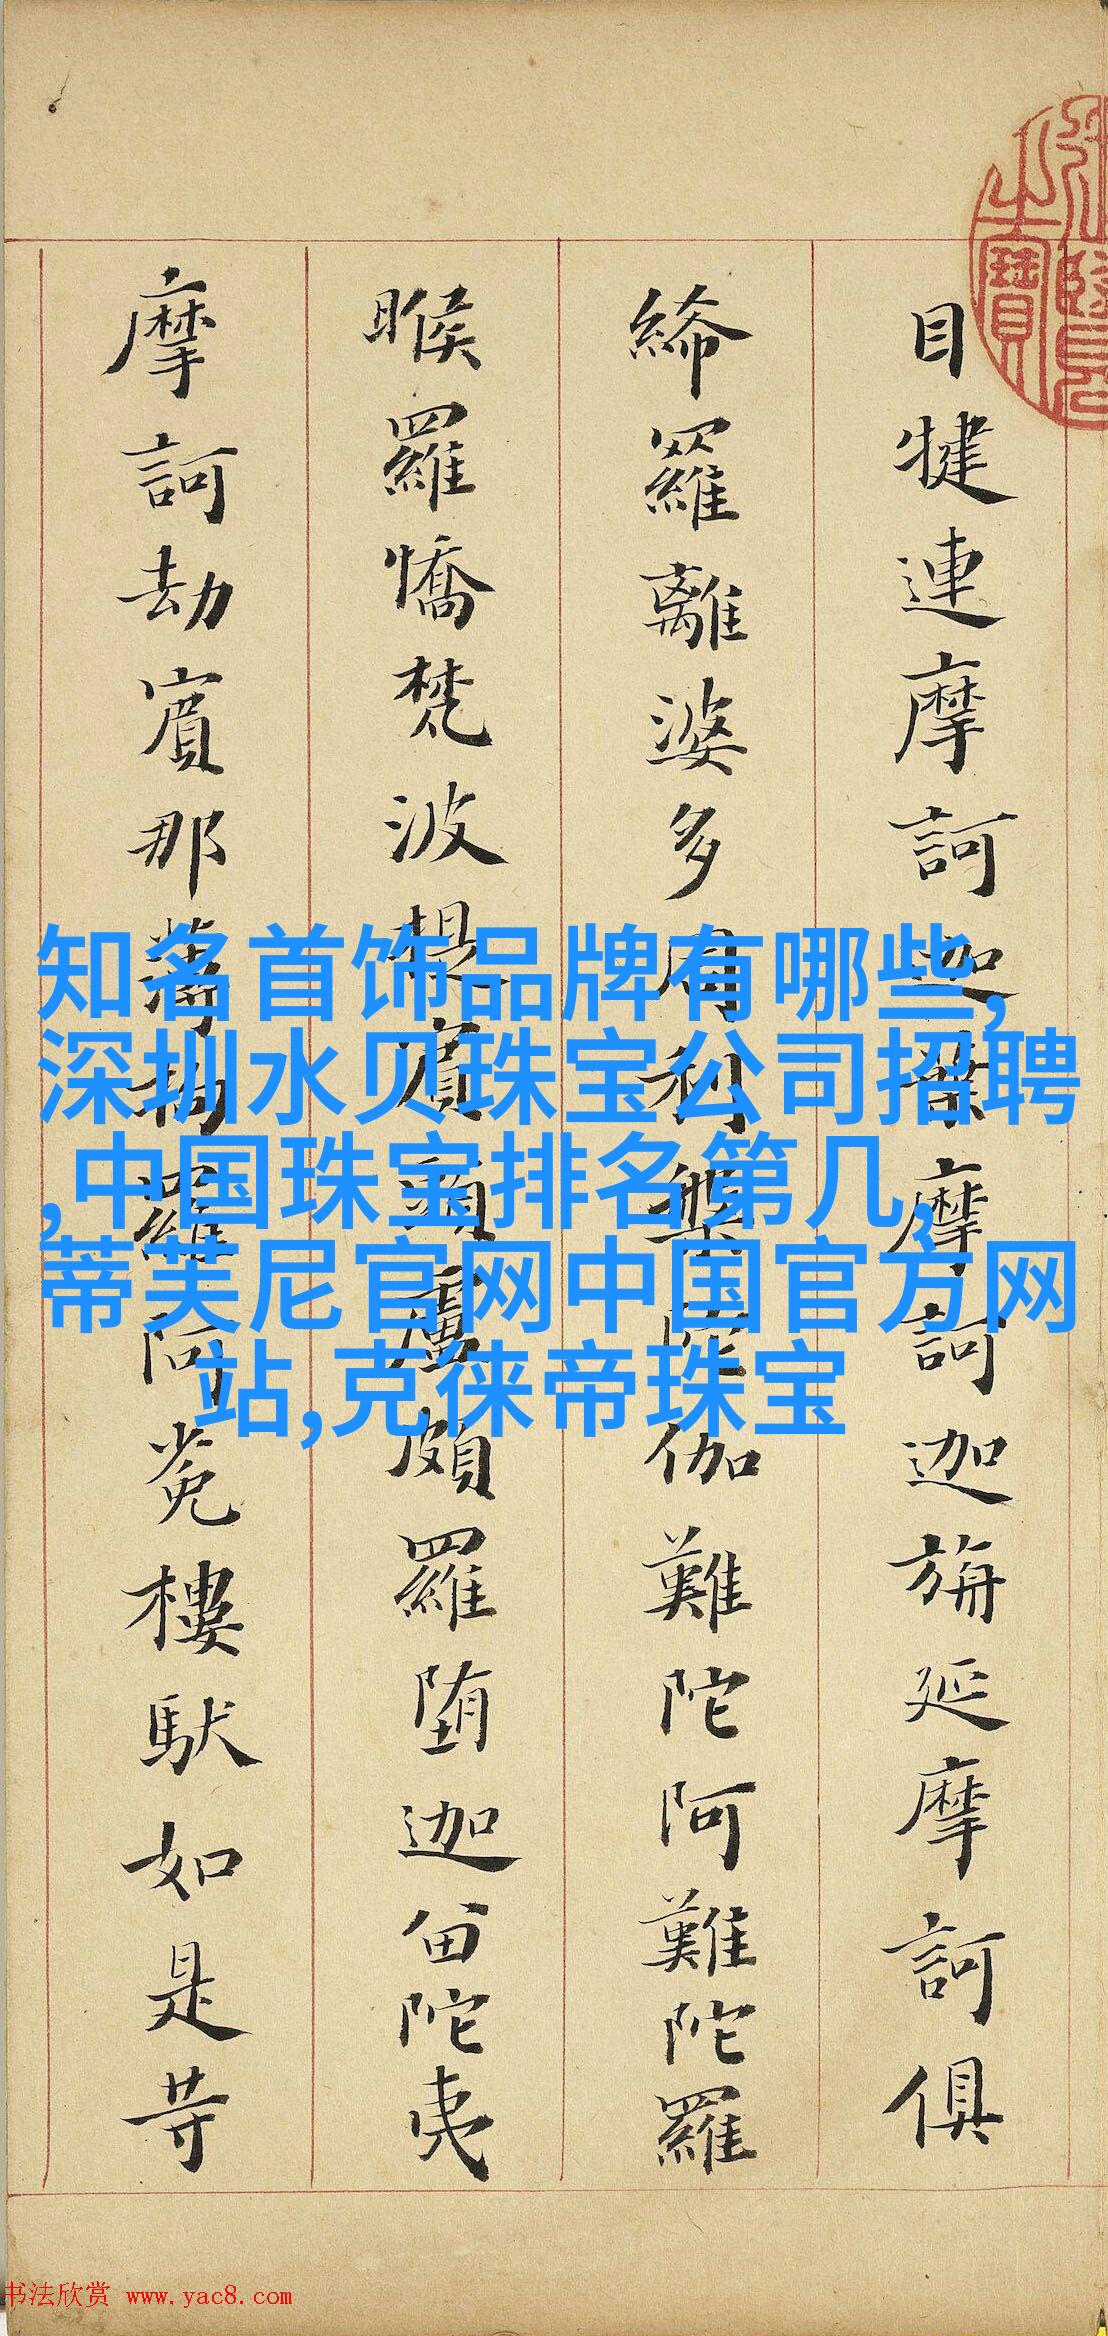 目犍連摩訶迦葉摩訶迦旃延摩訶俱
絺羅離婆多周利槃陀伽難陀阿難陀羅
睺羅憍梵波提賓頭盧頗羅堕迦留陀夷
摩訶劫賓那薄拘羅阿㝹樓馱如是等
之寶
知名首饰品牌有哪些,
深圳水贝珠宝公司招聘
,中国珠宝排名第几,
蒂芙尼官网中国官方网
站,克徕帝珠宝
书法欣赏 www.yac8.com